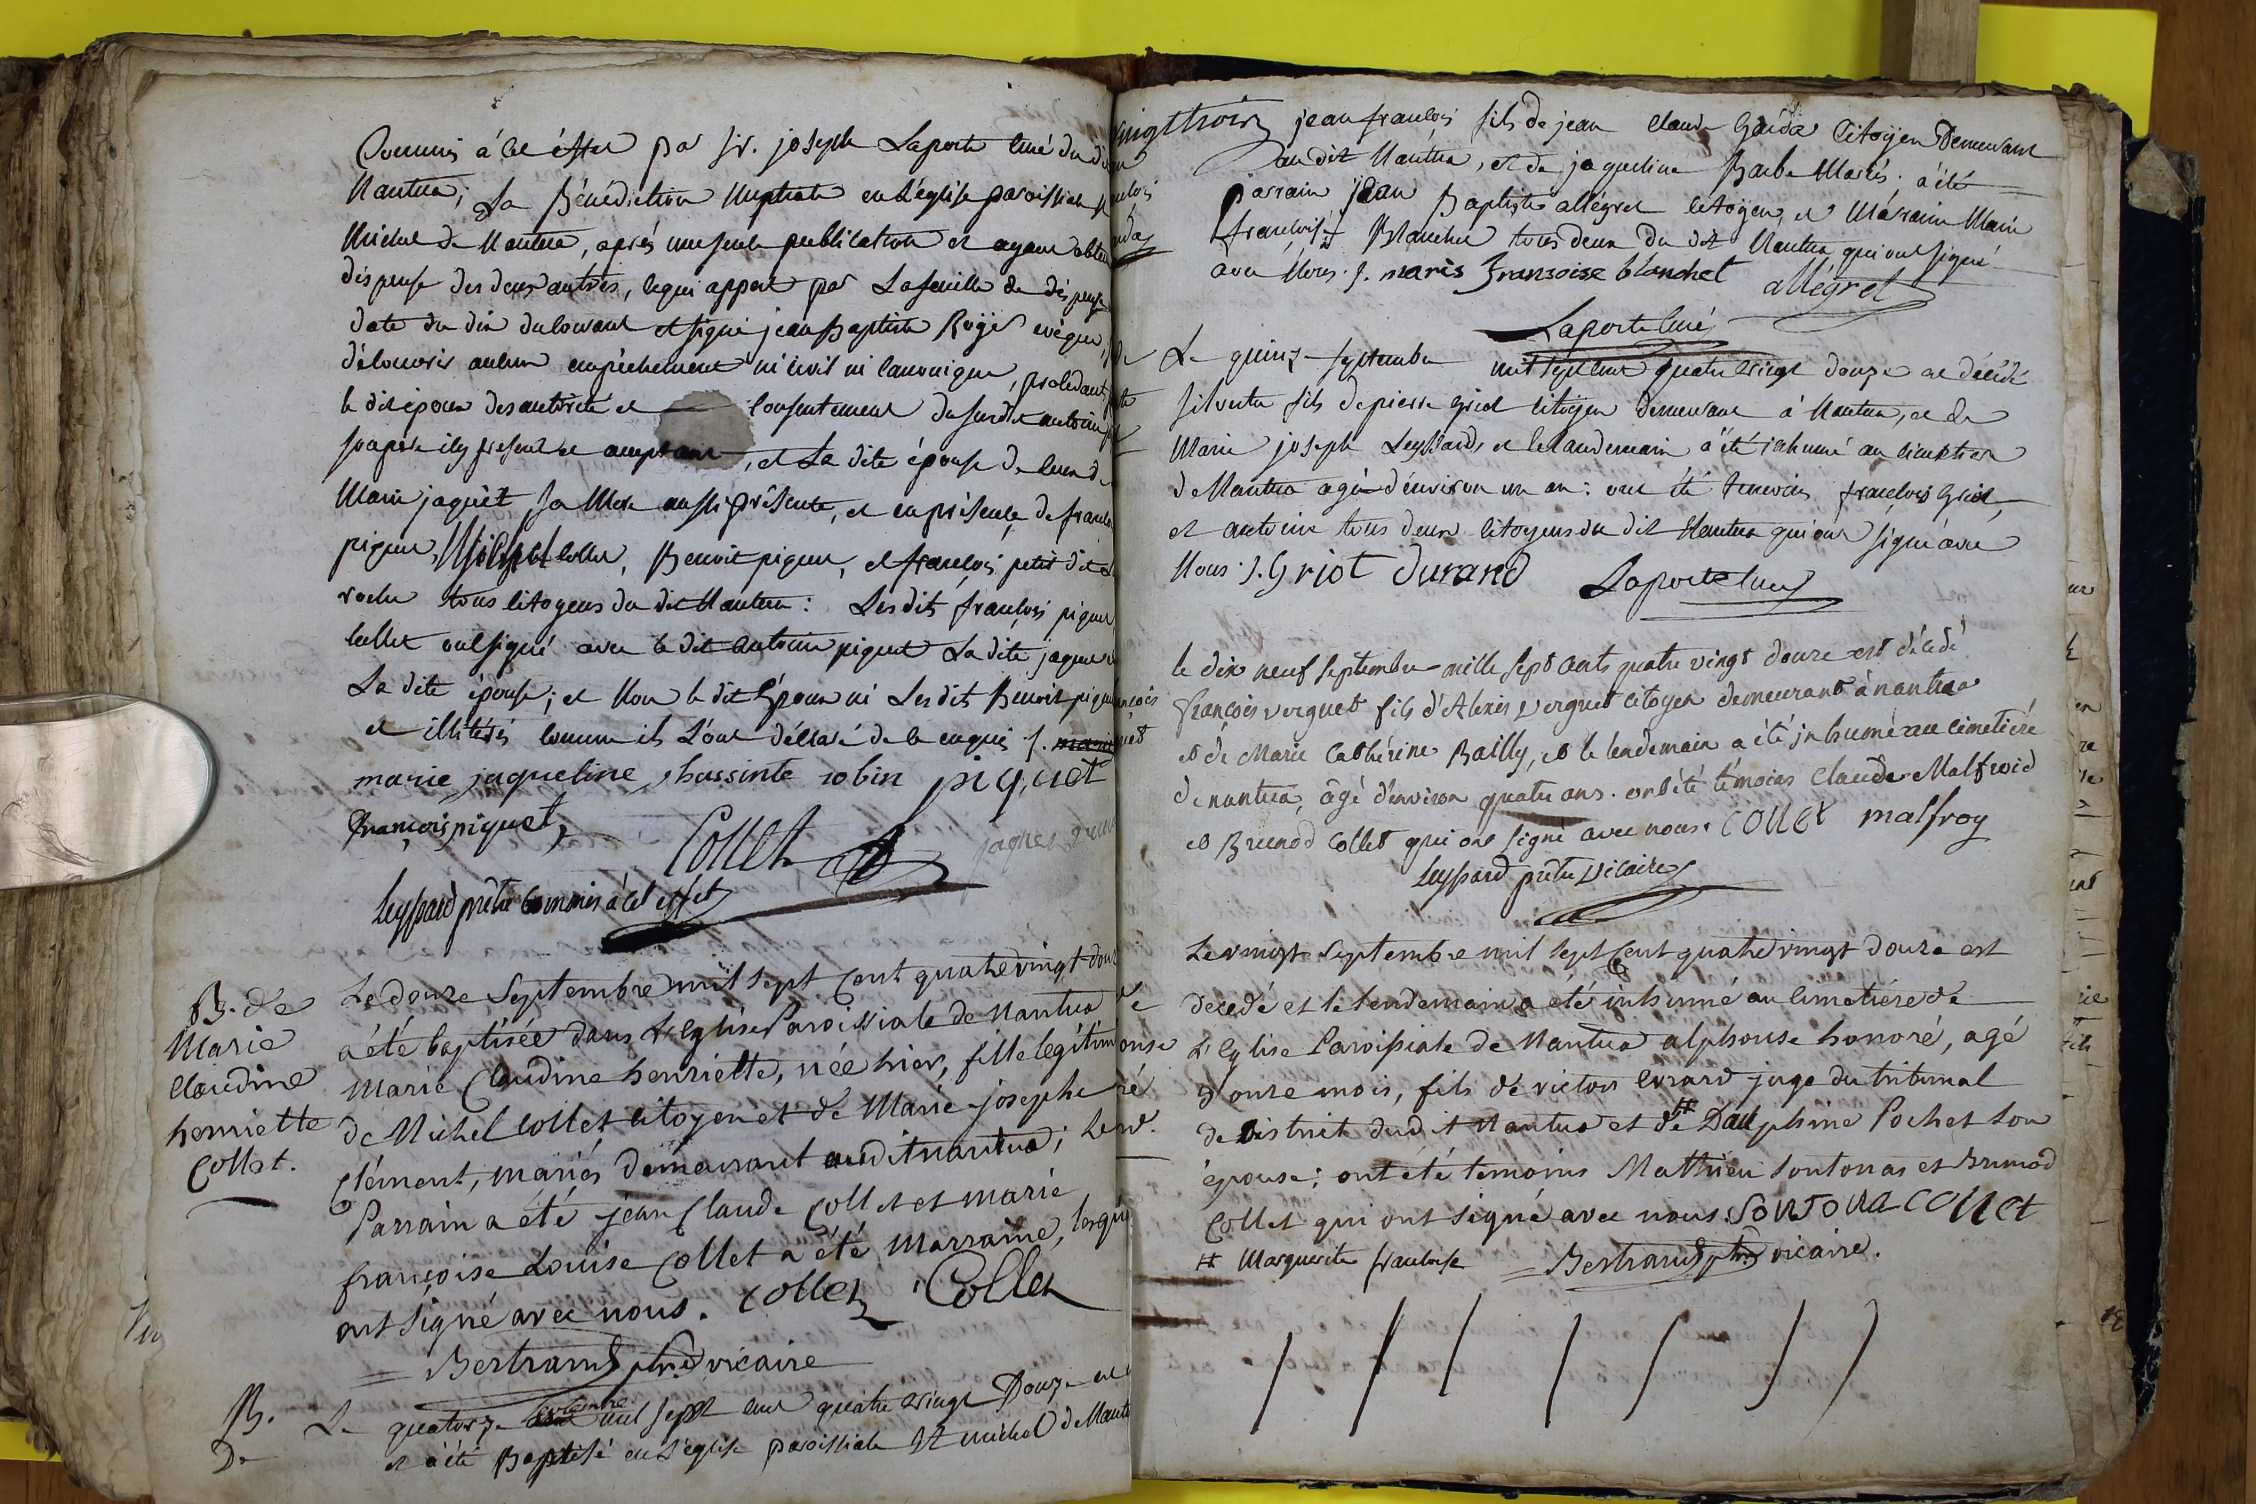 Commis à cet éffet par sr. joseph Laporte curé du dit
Nantua; La Bénédiction Nuptiale en L'église paroissiale st
Michel de Nantua, après une seule publication et ayant obtenu
dispense des deux autres, ce qui appert par La feuille de dispense
date du dix du courant et signé jean Baptiste Royer evêque,
découvris aucun empêchement ni civil ni canonique, procédant
le dit époux des autorité et consentement du susdit antoine
son père icy présent et acceptant, et La dite épouse de ceux de
Marie jaquet sa Mere aussi présente, et en présence de françois
piquet, Michel collet, Benoit piquet, et françois petit dit La
roche tous citoyens du dit Nantua: Les dits françois piquet
collet ont signé avec le dit antoine piquet La dite jaquet
La dite épouse; et Non le dit Epoux ni Les dits Benoit piquet
et illitérés comme ils L'ont déclaré de ce enquis ./.
marie jaqueline hassinte robin piquet
françois piquet
Collet
Leyssard prêtre commis à cet effet
B. de
Marie
Claudine
henriette
Collet.
Le douze Septembre mil sept Cent quatre vingt douze
a été baptisée dans L'Eglise Paroissiale de Nantua
Marie Claudine henriette, née hier, fille légitime
de Michel Collet citoyen et de Marie josephe
Clément, mariés demeurant audit nantua; Le
Parrain a été jean Claude Collet et marie
françoise Louise Collet a été Marraine, lesquels
ont signé avec nous. Collet Collet
Bertrand ptre vicaire
B.
De
Le quatorze septembre mil sept cent quatre vingt Douze est
et a été Baptisé en L'église paroissiale St michel de Nantua
vingt trois jean françois fils de jean Claude Garda citoyen Demeurant
au dit Nantua, et de jaqueline Barbe Mariés; a été
parrain jean Baptiste allegret citoyen, et Maraine Marie
françoise Blanchet tous deux du dit Nantua qui ont signé
avec Nous ./. maris fransoise blanchet allégret
Laporte Curé
Le quinze septembre mil sept cent quatre vingt douze est décédé
silvestre fils de pierre Griot citoyen demeurant à Nantua, et de
Marie joseph Leyssard, et le landemain a été inhumé au cimetiere
de Nantua agé d'environ un an: ont été temoins françois Griot,
et antoine tous deux citoyens du dit Nantua qui ont signé avec
Nous ./. Griot durand Laporte curé
le dix neuf Septembre mille sept cents quatre vingt douze est décedé
françois verguet fils d'Alexis verguet citoyen demeurant à nantua
et de Marie Catherine Bailly, et le lendemain a été jnhumé au cimetiere
de nantua, âgé d'environ quatre ans. ont été témoins Claude Malfroid
et Brunod Collet qui ont signé avec nous. Collet malfroy
Leyssard prêtre vicaire
Le vingt Septembre mil sept Cent quatre vingt douze est
decedé et le lendemain a été inhumé au Cimetiére de
L'Eglise Paroissiale de Nantua alphonse honoré, agé
d'onze mois, fils de victor Evrard juge du tribunal
de District dudit Nantua et de # Dauphine Pochet son
épouse; ont été temoins Mathieu Sontonas et Brunod
Collet qui ont signé avec nous. Sontona Collet
# Marguerite françoise Bertrand ptre vicaire.